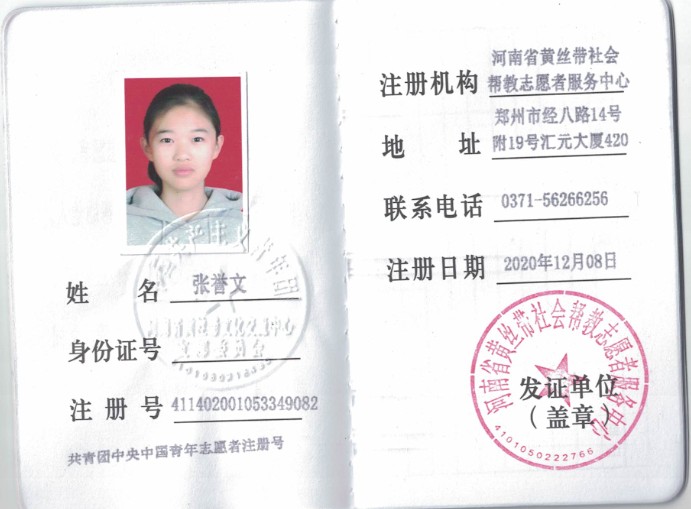 姓 名 张誉文
身份证号
注 册 号 411402001053349082
共青团中央中国青年志愿者注册号
注册机构 河南省黄丝带社会
帮教志愿者服务中心
地 址 郑州市经八路14号
附19号汇元大厦420
联系电话 0371-56266256
注册日期 2020年12月08日
河南省黄丝带社会帮教志愿者服务中心
发证单位
(盖章)
4101050222766